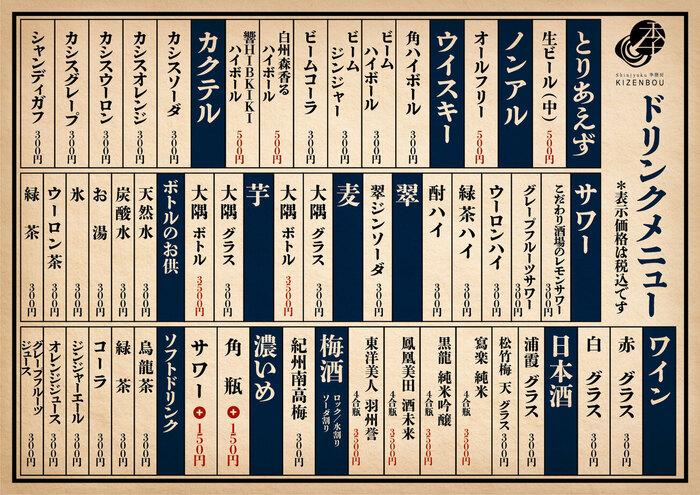 李
Shinjyuku 李膳房
KIZENBOU
ドリンクメニュー
*表示価格は税込です
とりあえず
生ビール(中) 500円
ノンアル
オールフリー 500円
ウイスキー
角ハイボール 300円
ビーム
ハイボール 300円
ビーム
ジンジャー 300円
ビームコーラ 300円
白州森香る
ハイボール 500円
響HIBKIKI
ハイボール 500円
カクテル
カシスソーダ 300円
カシスオレンジ 300円
カシスウーロン 300円
カシスグレープ 300円
シャンディガフ 300円
サワー
こだわり酒場のレモンサワー 300円
グレープフルーツサワー 300円
ウーロンハイ 300円
緑茶ハイ 300円
酎ハイ 300円
翠
翠ジンソーダ 300円
麦
大隅 グラス 300円
大隅 ボトル 2500円
芋
大隅 グラス 300円
大隅 ボトル 2500円
ボトルのお供
天然水 300円
炭酸水 300円
お湯 300円
氷 300円
ウーロン茶 300円
緑茶 300円
ワイン
赤 グラス 300円
白 グラス 300円
日本酒
浦霞 グラス 300円
松竹梅 天 グラス 300円
寫楽 純米 4合瓶 3500円
黒龍 純米吟醸 4合瓶 3500円
鳳凰美田 酒未来 4合瓶 3500円
東洋美人 羽州誉 4合瓶 3500円
梅酒 ロック/水割り
ソーダ割り
紀州南高梅 300円
濃いめ
角瓶 +150円
サワー +150円
ソフトドリンク
烏龍茶 300円
緑茶 300円
コーラ 300円
ジンジャーエール 300円
オレンジジュース 300円
グレープフルーツ
ジュース 300円